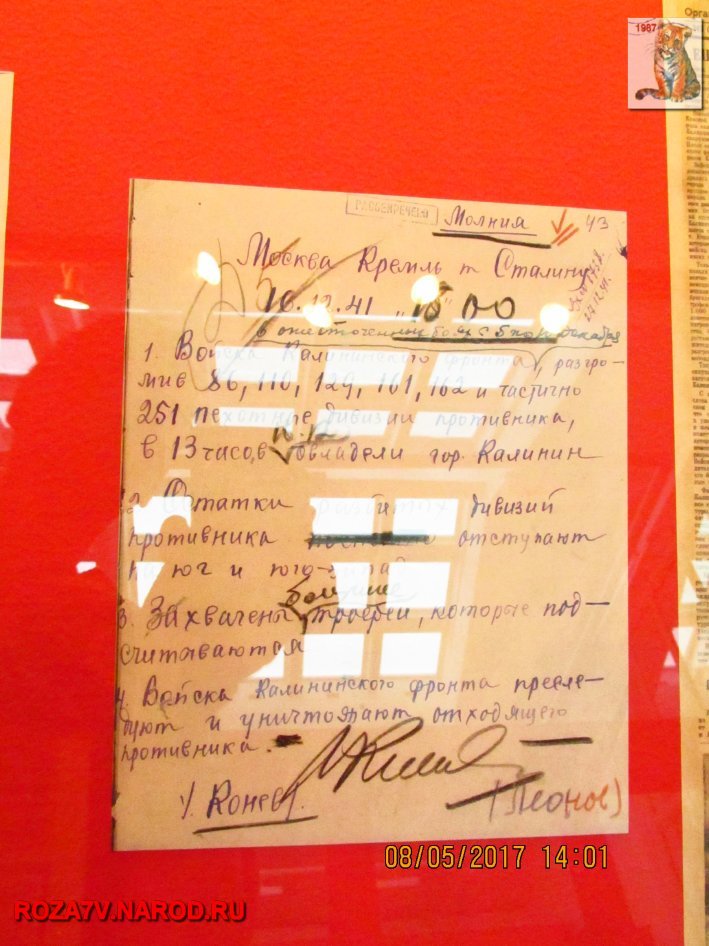 1987
РАССЕКРЕЧЕНО
Молния
43
Москва Кремль т Сталину
16.12.41 18 00
в ожесточенных боях с 5 по декабря
1. Войска Калининского фронта, разгро-
мив 86, 110, 129, 161, 162 и частично
251 пехотные дивизии противника,
в 13 часов 16.12 овладели гор. Калинин
2. Остатки разбитых дивизий
противника отступают
на юг и юго-запад
большие
3. Захвачены трофеи, которые под-
считываются
4. Войска Калининского фронта пресле-
дуют и уничтожают отходящего
противника.
Конев.
(Леонов)
08/05/2017 14:01
ROZA7V.NAROD.RU